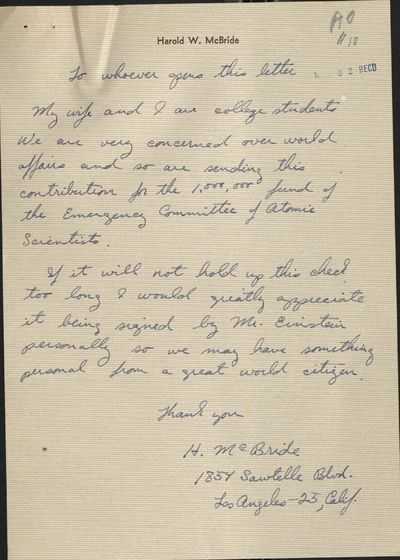 Harold W. McBride
AO
#10
22 RECD
To whoever opens this letter
My wife and I are college students
We are very concerned over world
affairs and so are sending this
contribution for the 1,000,000 fund of
the Emergency Committee of Atomic
Scientists.
If it will not hold up this check
too long I would greatly appreciate
it being signed by Mr. Einstein
personally so we may have something
personal from a great world citizen.
Thank you
H. McBride
1854 Sawtelle Blvd.
Los Angeles-25, Calif.